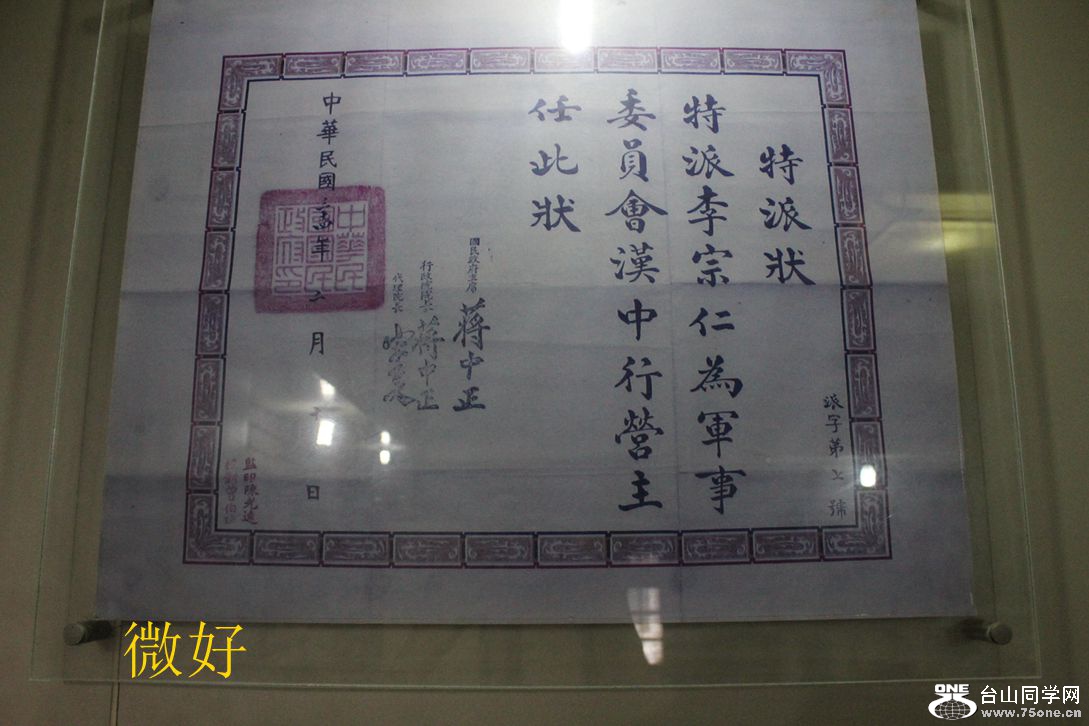 特派狀
特派李宗仁為軍事
委員會漢中行營主
任此狀
國民政府主席 蔣中正
行政院院長 蔣中正
代理院長 宋子文
中華民國三十四年二月 日
中華民國國民政府印
派字第 號
監印陳光遠
微好
ONE
台山同学网
www.75one.cn